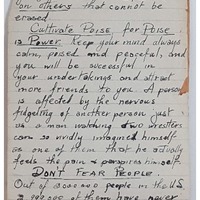 "on others" that cannot be
erased
Cultivate Poise, for Poise
is Power, keep your mind always
calm, poised and peaceful, and
you will be successful in
your undertakings and attract
more friends to you. A person
is affected by the nervous
fidgeting of another person just
as a man watching two wrestlers
can so vividly imagined himself
as one of them that he actually
feels the pain & perspires himself.
DON'T FEAR PEOPLE.
Out of people in the U.S.
of them have never